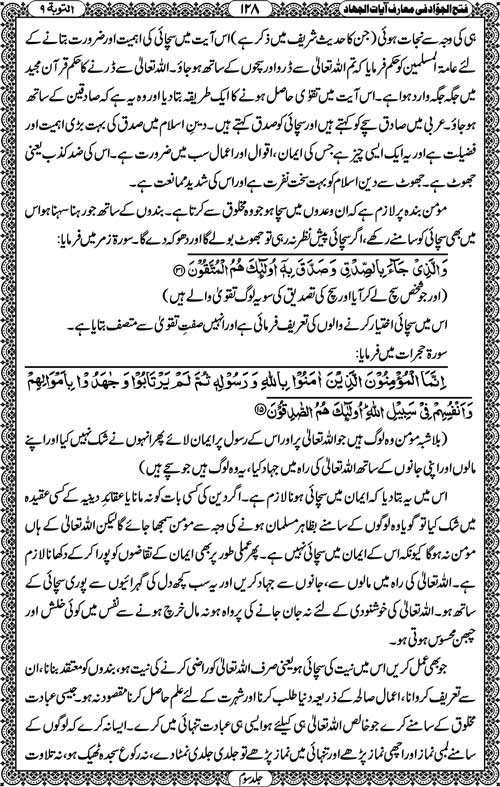 فتح الجوّاد فی معارف آیات الجہاد ۱۲۸ التوبۃ ۹
ہی کی وجہ سے نجات ہوئی (جن کا حدیث شریف میں ذکر ہے) اس آیت میں سچائی کی اہمیت اور ضرورت بتانے کے
لئے عامۃ المسلمین کو حکم فرمایا کہ تم اللہ تعالیٰ سے ڈرو اور سچوں کے ساتھ ہوجاؤ۔ اللہ تعالیٰ سے ڈرنے کا حکم قرآن مجید
میں جگہ جگہ وارد ہوا ہے۔ اس آیت میں تقویٰ حاصل ہونے کا ایک طریقہ بتادیا اور وہ یہ ہے کہ صادقین کے ساتھ
ہوجاؤ۔ عربی میں صادق سچے کو کہتے ہیں اور سچائی کو صدق کہتے ہیں۔ دین اسلام میں صدق کی بہت بڑی اہمیت اور
فضیلت ہے اور یہ ایک ایسی چیز ہے جس کی ایمان، اقوال اور اعمال سب میں ضرورت ہے۔ اس کی ضد کذب یعنی
جھوٹ ہے۔ جھوٹ سے دین اسلام کو بہت سخت نفرت ہے اور اس کی شدید ممانعت ہے۔
مؤمن بندہ پر لازم ہے کہ ان وعدوں میں سچا ہو جو وہ مخلوق سے کرتا ہے۔ بندوں کے ساتھ جو رہنا سہنا ہو اس
میں بھی سچائی کو سامنے رکھے، اگر سچائی پیش نظر نہ رہی تو جھوٹ بولے گا اور دھوکہ دے گا۔ سورۃ زمر میں فرمایا:
وَالَّذِیْ جَآءَ بِالصِّدْقِ وَصَدَّقَ بِهٖۤ اُولٰٓئِكَ هُمُ الْمُتَّقُوْنَ ﴿۳۳﴾
(اور جو شخص سچ لے کر آیا اور سچ کی تصدیق کی سو یہ لوگ تقویٰ والے ہیں)
اس میں سچائی اختیار کرنے والوں کی تعریف فرمائی ہے اور انہیں صفتِ تقویٰ سے متصف بتایا ہے۔
سورۃ حجرات میں فرمایا:
اِنَّمَا الْمُؤْمِنُوْنَ الَّذِیْنَ اٰمَنُوْا بِاللّٰهِ وَرَسُوْلِهٖ ثُمَّ لَمْ یَرْتَابُوْا وَجٰهَدُوْا بِاَمْوَالِهِمْ
وَاَنْفُسِهِمْ فِیْ سَبِیْلِ اللّٰهِ ؕ اُولٰٓئِكَ هُمُ الصّٰدِقُوْنَ ﴿۱۵﴾
(بلاشبہ مؤمن وہ لوگ ہیں جو اللہ تعالیٰ پر اور اس کے رسول پر ایمان لائے پھر انہوں نے شک نہیں کیا اور اپنے
مالوں اور اپنی جانوں کے ساتھ اللہ تعالیٰ کی راہ میں جہاد کیا، یہ وہ لوگ ہیں جو سچے ہیں)
اس میں یہ بتادیا کہ ایمان میں سچائی ہونا لازم ہے۔ اگر دین کی کسی بات کو نہ مانا یا عقائدِ دینیہ کے کسی عقیدہ
میں شک کیا تو گویا وہ لوگوں کے سامنے بظاہر مسلمان ہونے کی وجہ سے مؤمن سمجھا جائے گا لیکن اللہ تعالیٰ کے ہاں
مؤمن نہ ہوگا کیونکہ اس کے ایمان میں سچائی نہیں ہے۔ پھر عملی طور پر بھی ایمان کے تقاضوں کو پورا کرکے دکھانا لازم
ہے۔ اللہ تعالیٰ کی راہ میں مالوں سے، جانوں سے جہاد کریں اور یہ سب کچھ دل کی گہرائیوں سے پوری سچائی کے
ساتھ ہو۔ اللہ تعالیٰ کی خوشنودی کے لئے نہ جان جانے کی پرواہ ہو نہ مال خرچ ہونے سے نفس میں کوئی خلش اور
چبھن محسوس ہوتی ہو۔
جو بھی عمل کریں اس میں نیت کی سچائی ہو یعنی صرف اللہ تعالیٰ کو راضی کرنے کی نیت ہو، بندوں کو معتقد بنانا، ان
سے تعریف کروانا، اعمال صالحہ کے ذریعہ دنیا طلب کرنا اور شہرت کے لئے علم حاصل کرنا مقصود نہ ہو۔ جیسی عبادت
مخلوق کے سامنے کرے جو خالص اللہ تعالیٰ ہی کیلئے ہو ایسی ہی عبادت تنہائی میں کرے۔ ایسا نہ کرے کہ لوگوں کے
سامنے لمبی نماز اور اچھی نماز پڑھے اور تنہائی میں نماز پڑھے تو جلدی جلدی نمٹادے، نہ رکوع سجدہ ٹھیک ہو، نہ تلاوت
جلد سوم